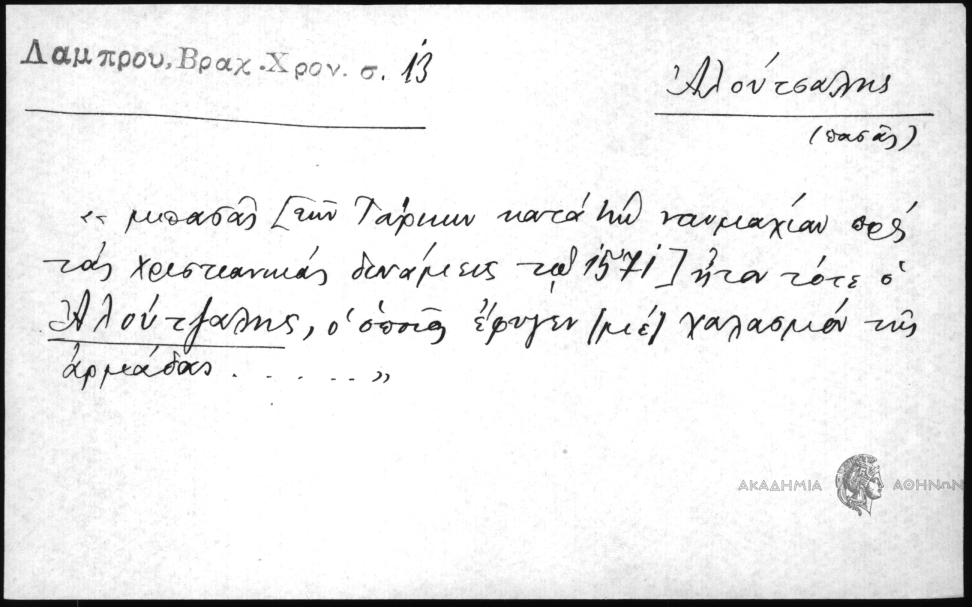 Λαμπρου, Βραχ. Χρον. σ. 13
Ἀλούτσαλης
(πασᾶς)
« μπασᾶς [τῶν Τούρκων κατὰ τὴν ναυμαχίαν πρὸς
τὰς χριστιανικὰς δυνάμεις τοῦ 1571] ἦτον τότε ὁ
Ἀλούτζαλης, ὁ ὁποῖος ἔφυγεν (μὲ) χαλασμὸν τῆς
ἀρμάδας . . . . . . »
ΑΚΑΔΗΜΙΑ ΑΘΗΝΩΝ